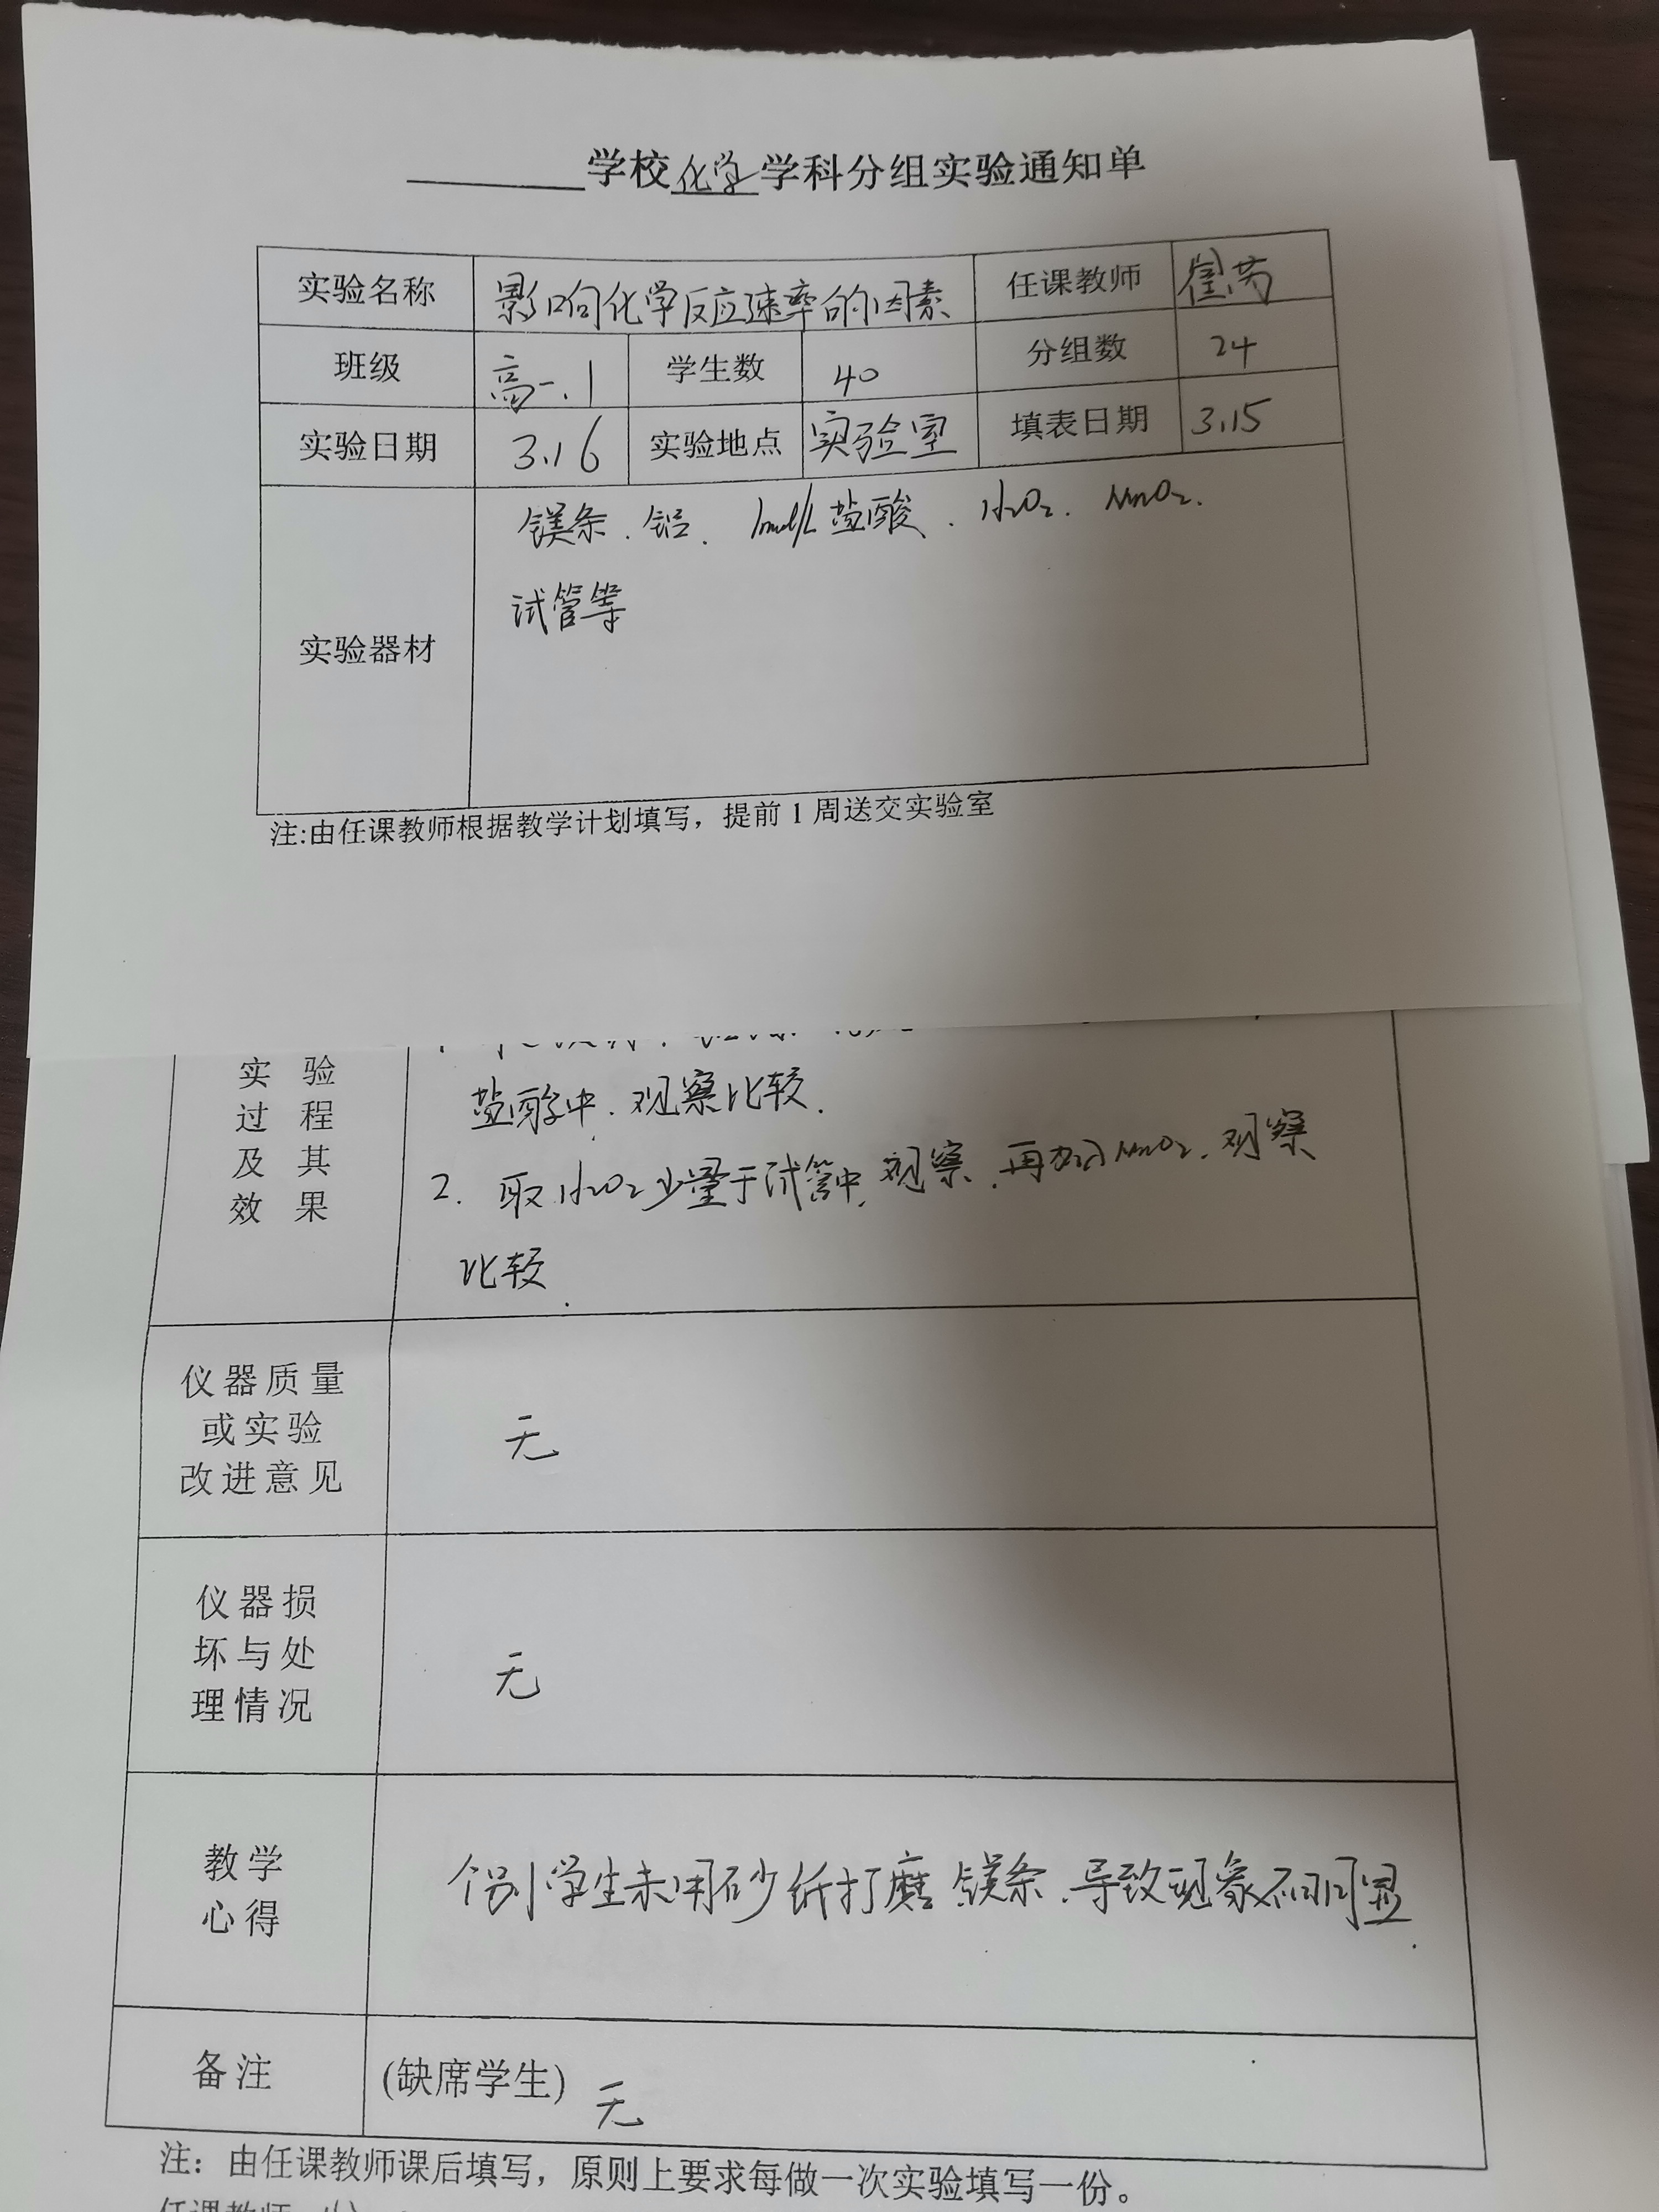 学校化学学科分组实验通知单
实验名称 影响化学反应速率的因素 任课教师 崔芮
班级 高一.1 学生数 40 分组数 24
实验日期 3.16 实验地点 实验室 填表日期 3.15
实验器材 镁条、铝、1mol/L盐酸、H2O2、MnO2、
试管等
注:由任课教师根据教学计划填写，提前1周送交实验室
实验
过程
及其
效果
盐酸中、观察比较.
2. 取H2O2少量于试管中,观察、再加入MnO2、观察
比较.
仪器质量
或实验
改进意见
无
仪器损
坏与处
理情况
无
教学
心得
个别学生未用砂纸打磨镁条、导致现象不明显.
备注 (缺席学生) 无
注：由任课教师课后填写，原则上要求每做一次实验填写一份。